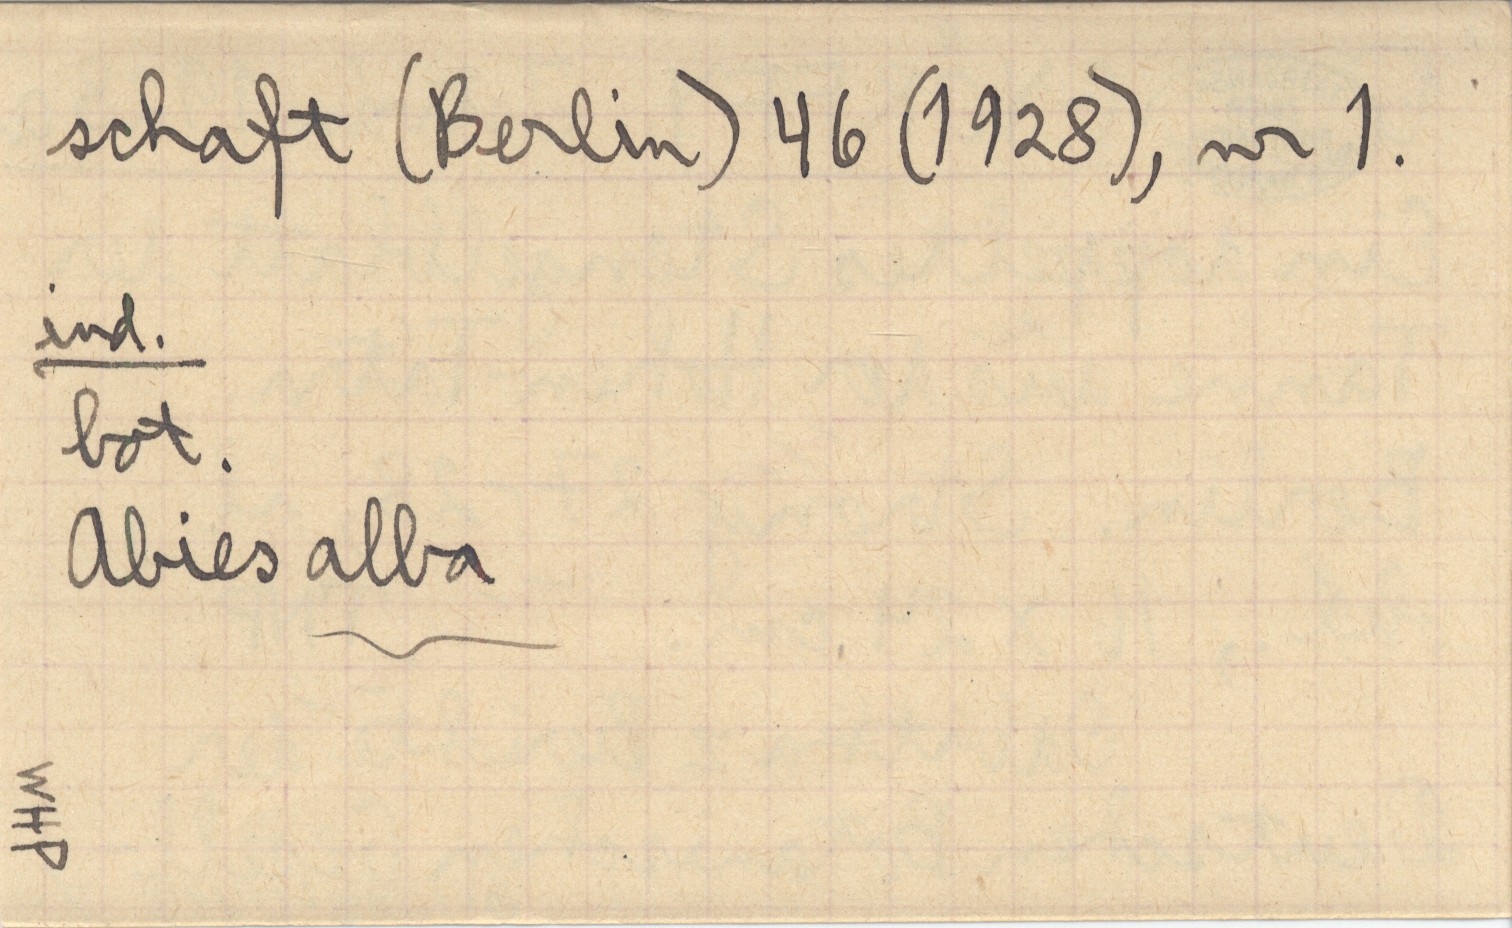 schaft (Berlin) 46 (1928), nr 1.
ind.
bot.
Abies alba
WHP